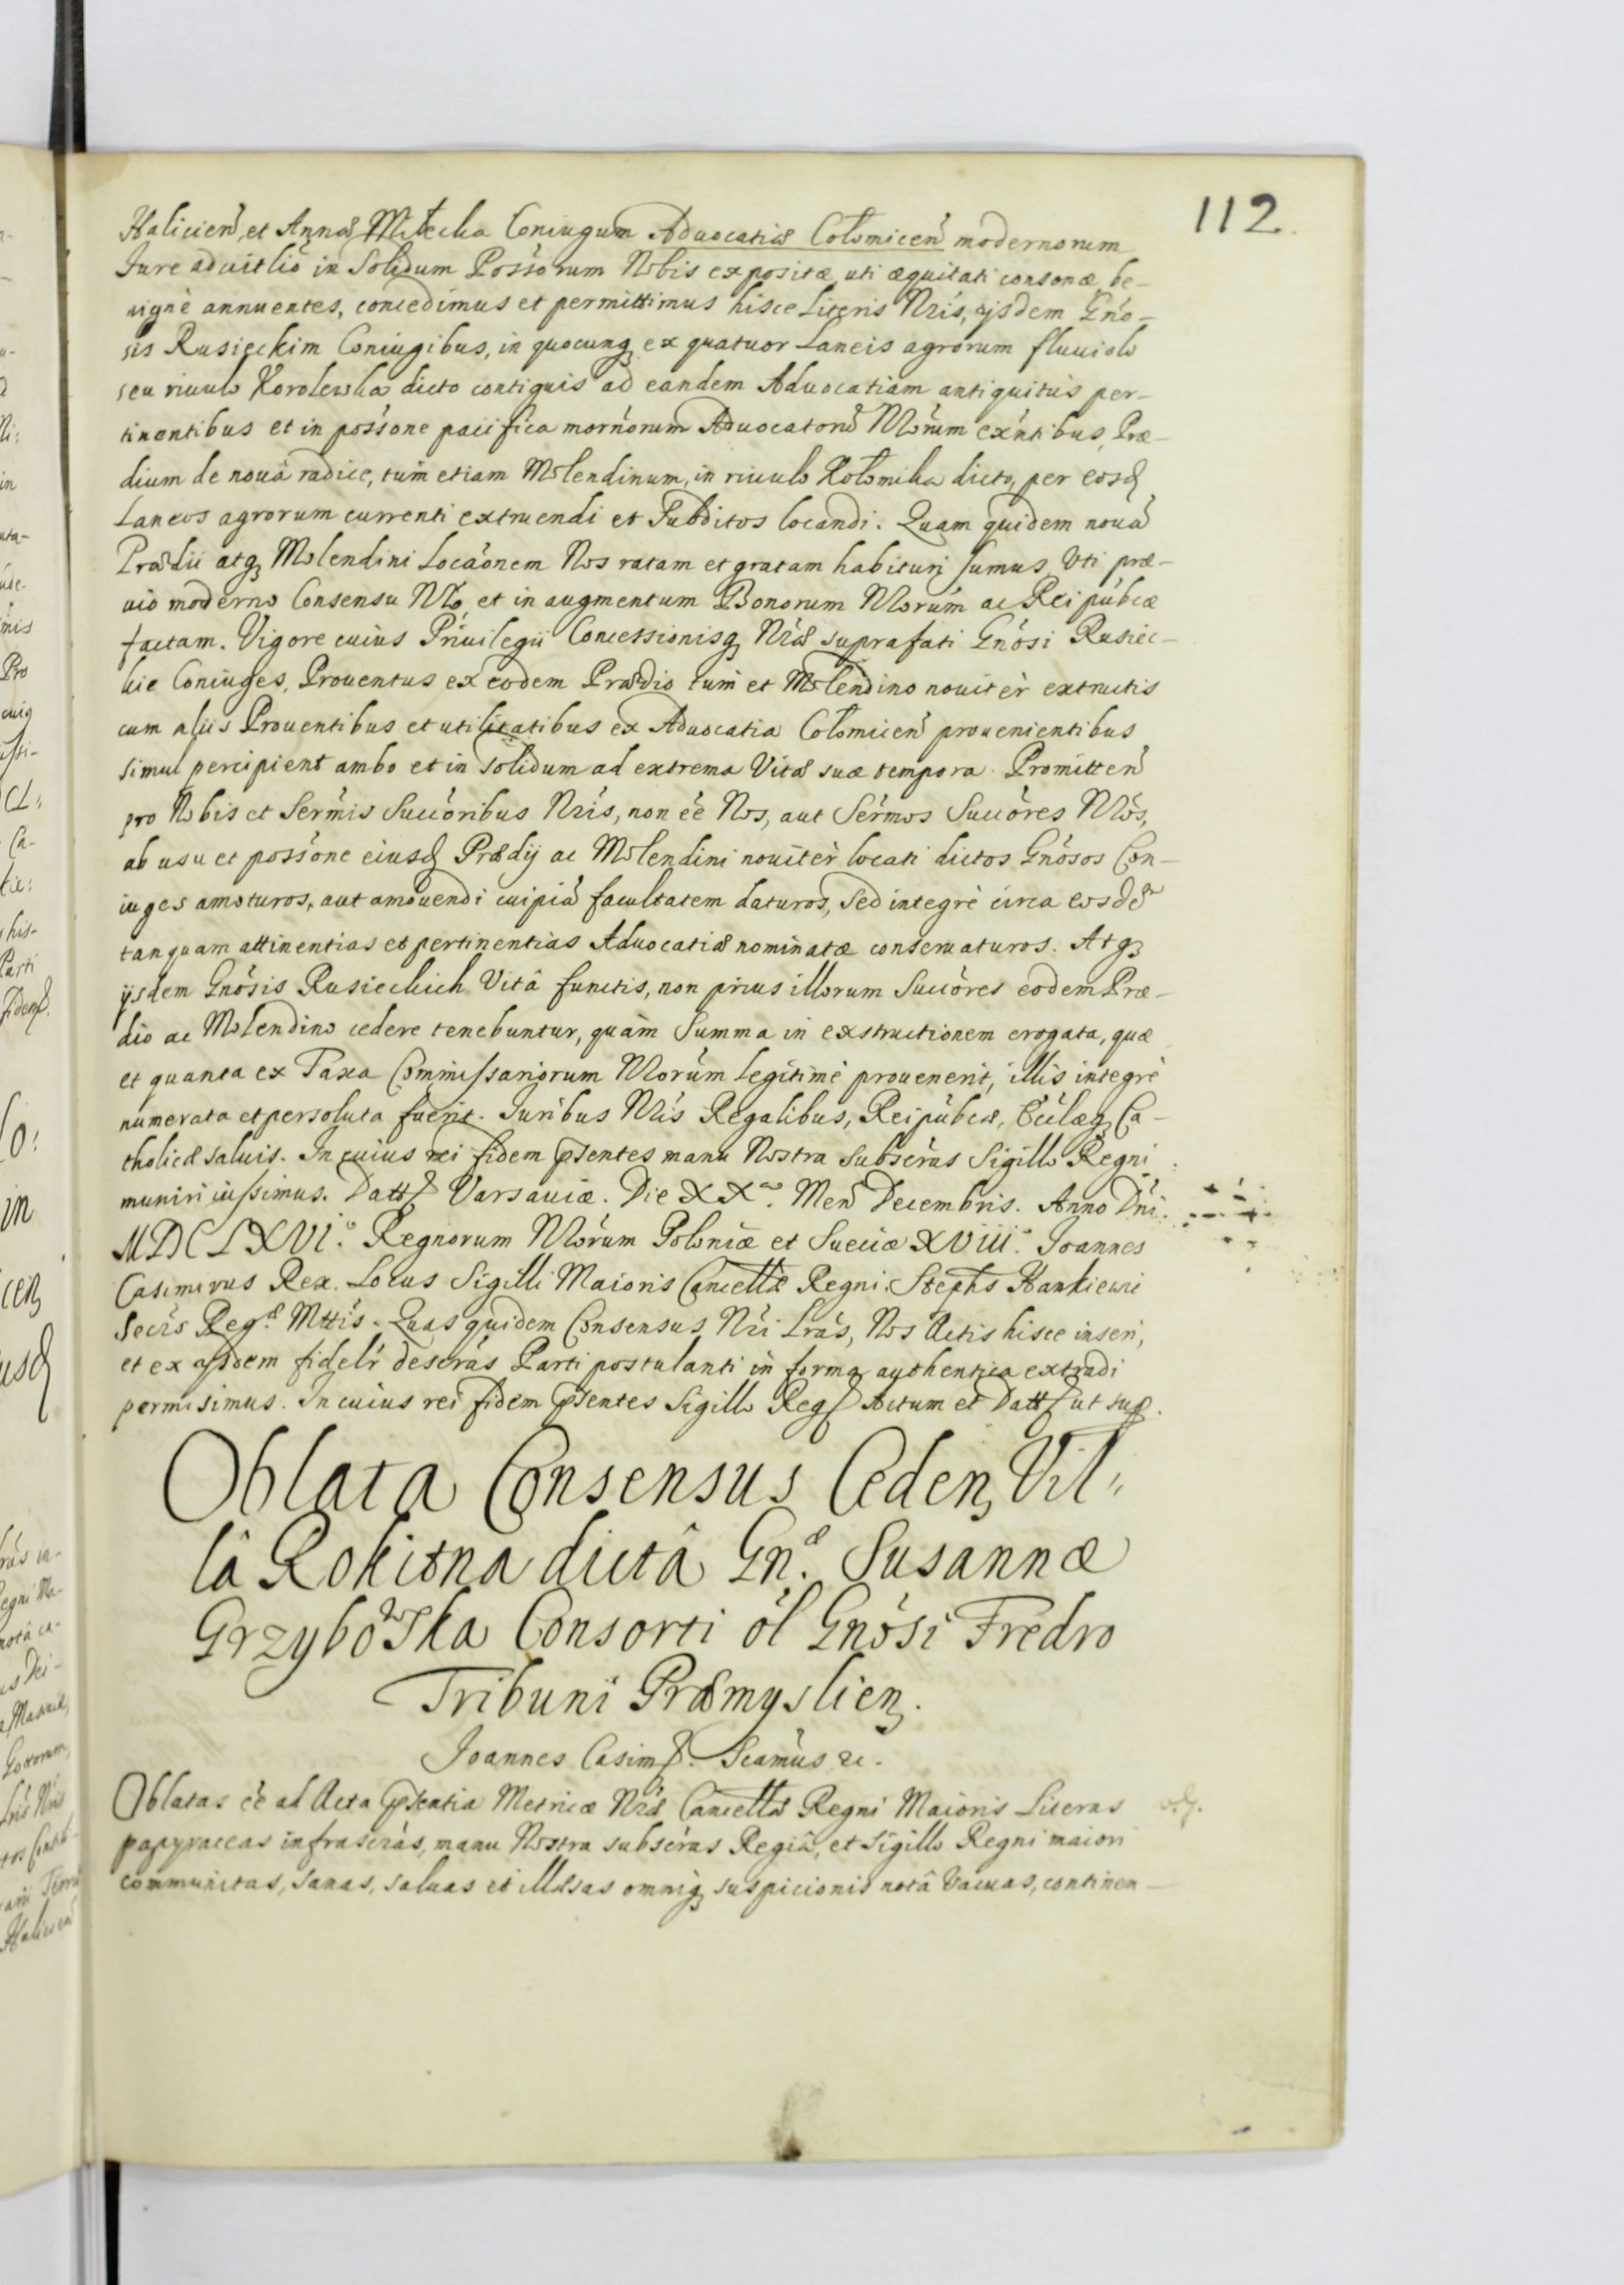 112.
Halicien̄, et Annæ Mitecka Coniugum Aduocatiæ Colomicen̄ modernorum
Iure aduitlió in Solidum Possorum Nobis expositæ uti æquitati consonæ be-
nignè annuentes, concedimus et permittimus hisce Literis Nris, ijsdem Gńo-
sis Rusieckim Coniugibus, in quocunq, ex quatuor Laneis agrorum fluuiolo
seu riuulo Korolewka dicto contiguis ad eandem Aduocatiam antiquitùs per-
tinentibus et in possóne pacifica mornórum Aduocatorũ Nrórum exńtibus, Præ-
dium de nouâ radice, tùm etiam Molendinum, in riuulo Kolomika dicto, per eosd
Laneos agrorum currenti extruendi et Subditos locandi. Quam quidem nouã
Prædii atq, Molendini Locaónem Nos ratam et gratam habituri sumus, Vti præ-
uio moderno Consensu Nró, et in augmentum Bonorum Nrorúm ac Reipúbcæ
factam. Vigore cuius Priuilegii Concessionisq, Nræ suprafati Gnósi Rusiec-
kie Coniuges, Prouentus ex eodem Prædio tùm et Molendino nouitèr extructis
cum alijs Prouentibus et utilitatibus ex Aduocatia Colomicen̄ prouenientibus
simul percipient ambo et in solidum ad extrema Vitæ suæ tempora. Promitten̄
pro Nobis et Sermis Succóribus Nrís, non éé Nos, aut Sérmos Succóres Nrós,
ab usu et possóne eiusd Prædij ac Molendini nouitèr locati dictos Gnósos Con-
iuges amoturos, aut amouendi cuipiã facultatem daturos, sed integrè circa eosdẽ
tanquam attinentias et pertinentias Aduocatiæ nominatæ conseruaturos. Atq,
ijsdem Gnósis Rusieckich Vitâ functis, non prius illorum Succóres eodem Præ-
dio ac Molendino cedere tenebuntur, quàm Summa in exstructionem erogata, quæ
et quanta ex Taxa Commissariorum Nrorúm legitimè prouenerit, illis integrè
numerata et persoluta fuerit. Iuribus Nrís Regalibus, Reipúbcæ, Ecclæq, Ca-
tholicæ saluis. In cuius rei fidem pńtentes manu Nostra subscras Sigillo Regni
muniri iussimus. Datt Varsauiæ. Die XXa. Men̄ Decembris. Anno Dńi.
MDCLXVIo. Regnorum Nrórum Poloniæ et Sueciæ XVIIIo. Joannes
Casimirus Rex. Locus Sigilli Maioris Cancellæ Regni. Stephs Hankiewi
Secrs Regæ Mttis. Quas quidem Consensus Nrí Lras, Nos Actis hisce inseri,
et ex ijsdem fidelr descras Parti postulanti in forma authentica extradi
permisimus. In cuius rei fidem pńtentes Sigillo Reg Actum et Datt ut sup.
Oblata Consensus Ceden, Vil"
lâ Rokitna dictâ Gnæ. Susannæ
Grzybowska Consorti ól Gnósi Fredro
Tribuni Præmyslien,.
Joannes Casim. Seamùs &c.
Oblatas éé ad Acta pńtentia Metricæ Nræ Cancellæ Regni Maioris Literas
papyraceas infrascrás, manu Nostra subscras Regiâ, et Sigillo Regni maiori
communitas, sanas, saluas et illæsas omniq, suspicionis notâ vacuas, continen-